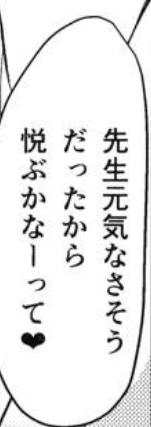 先生元気なさそう
だったから
悦ぶかなーって♥